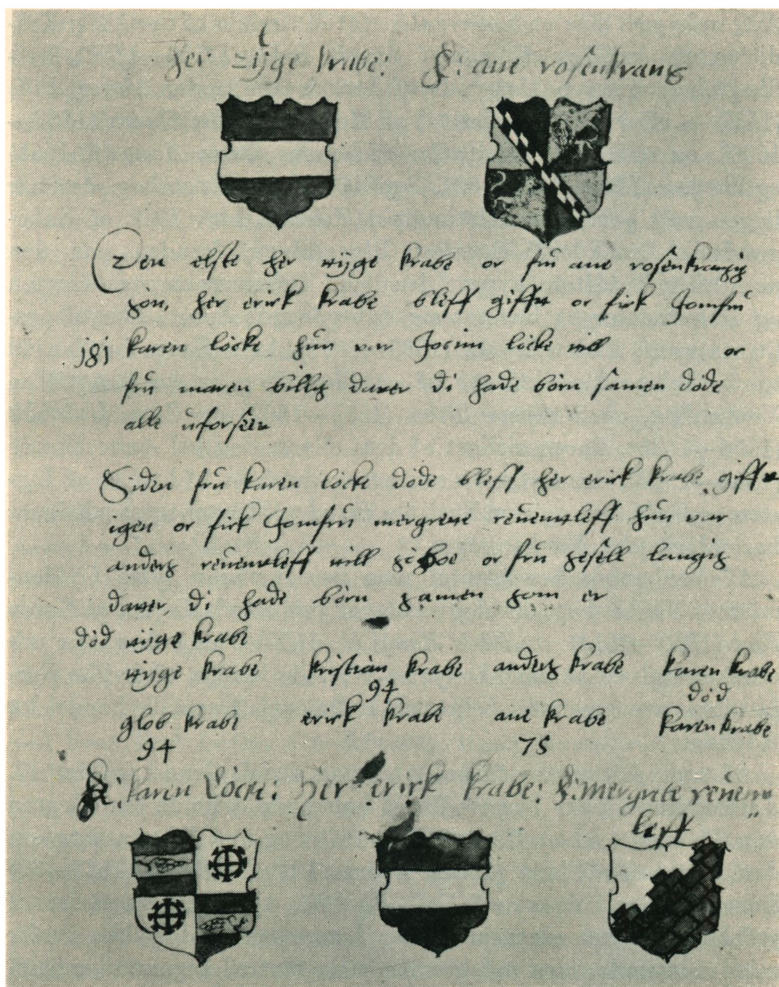 her tÿge krabe: F: ane rosenkrans
Den elste her tÿge krabe oc fru ane rosenkrantz
søn, her erick krabe bleff gifft oc fick Jomfrü
181 karen löcke hun var Jocim löcke till oc
frü maren billis daater di hade börn samen döde
alle
Siden frü karen löcke döde bleff her erick krabe gifft
igen oc fick Jomfrü mergrete reventleff hun var
anders reventleff till oc frü langis
daater di hade börn samen som er
död tÿge krabe
tÿge krabe kristian krabe anders krabe karen krabe
94 död
glob krabe erick krabe ane krabe karen krabe
94 75
F: karen Löcke: her erick krabe: F: mergrete reven
leff